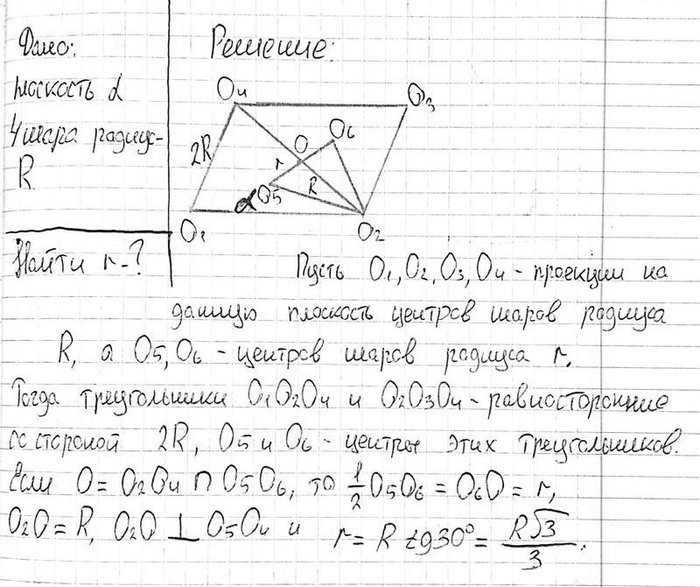 Дано:
плоскость α
4 шара радиус-
R
Найти r-?
Решение:
O4
O3
O6
2R
r
O
R
αO5
O1
O2
Пусть O1, O2, O3, O4 - проекции на
данную плоскость центров шаров радиуса
R, а O5, O6 - центров шаров радиуса r.
Тогда треугольники O1O2O4 и O2O3O4 - равносторонние
со стороной 2R, O5 и O6 - центры этих треугольников.
Если O = O2O4 ∩ O5O6, то 1/2 O5O6 = O6O = r,
O2O = R, O2O ⊥ O5O6 и r = R tg30° = R√3/3.